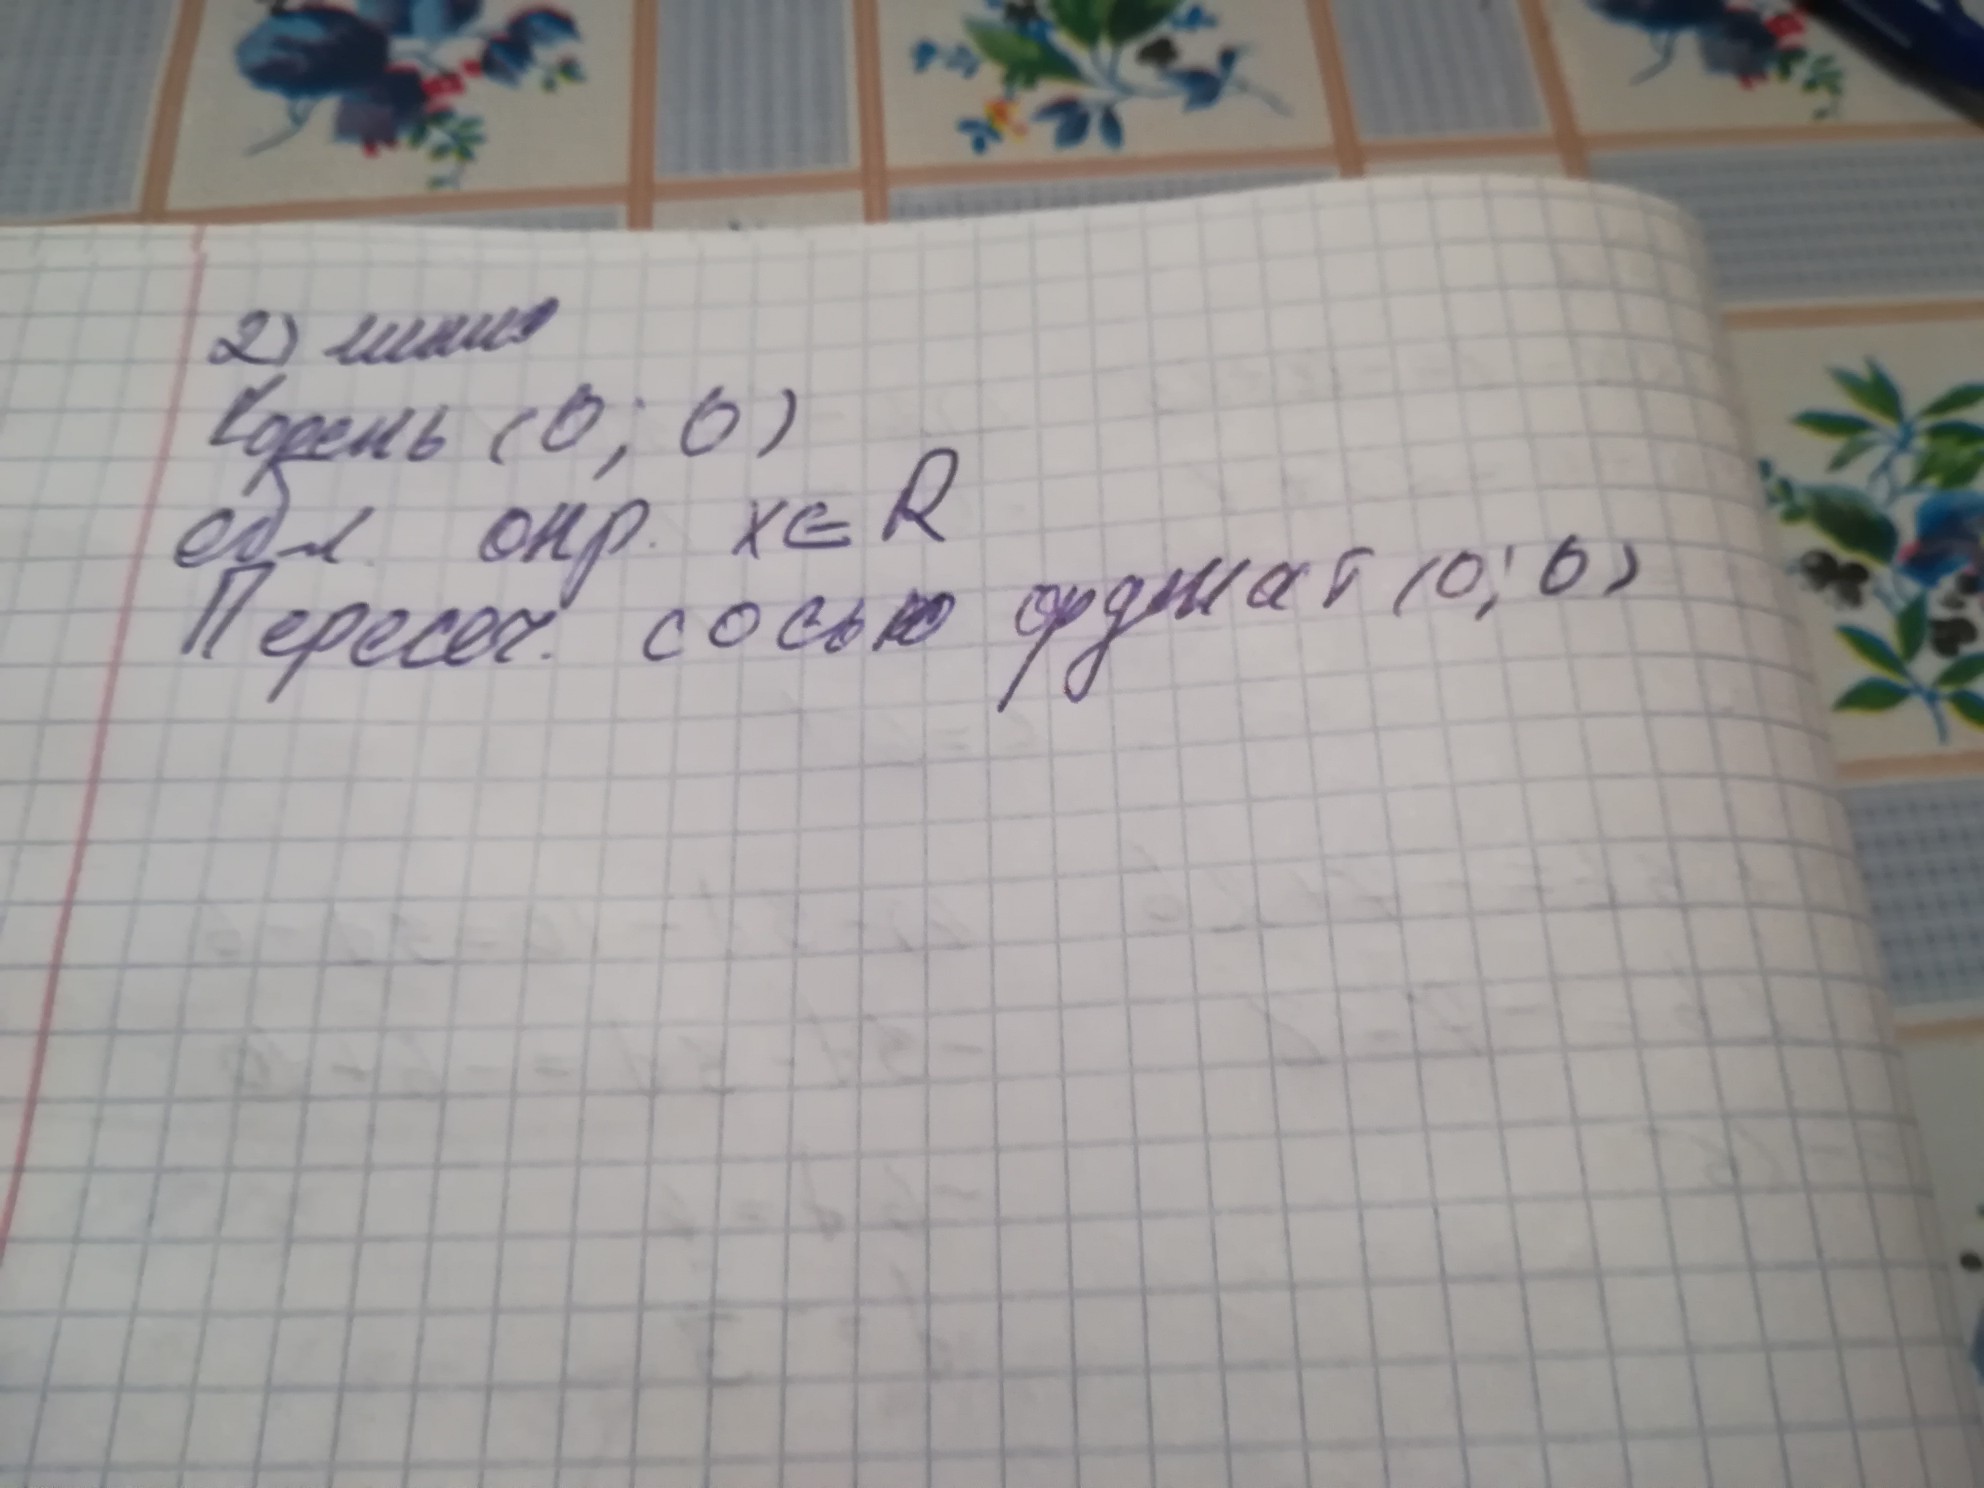 2) линия
Корень (0; 0)
обл. опр. x∈R
Пересеч. с осью орджнат (0; 0)